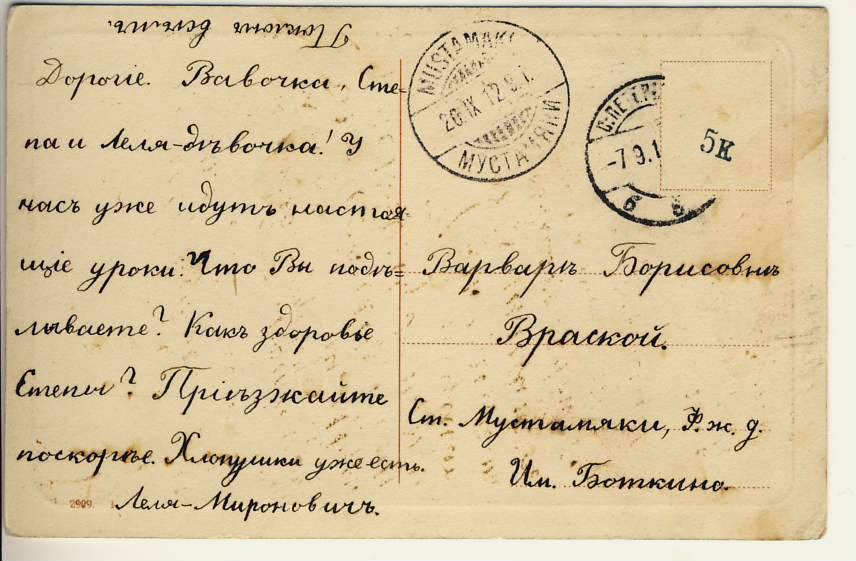 Поклонъ всѣмъ.
Дорогіе. Вавочка, Сте-
па и Леля-дѣвочка! У
насъ уже идутъ настоя-
щіе уроки. Что Вы подѣ=
лываете? Какъ здоровье
Степы? Пріѣзжайте
поскорѣе. Хлопушки уже есть.
Леля-Мироновичъ.
2909.
MUSTAMÄKI
26.IX.12.9.1.
МУСТАМЯКИ
С.ПЕТЕРБ
-7.9.1
б б
5к
Варварѣ Борисовнѣ
Враской.
Ст. Мустамяки, Ф. ж. д.
Им. Боткина.